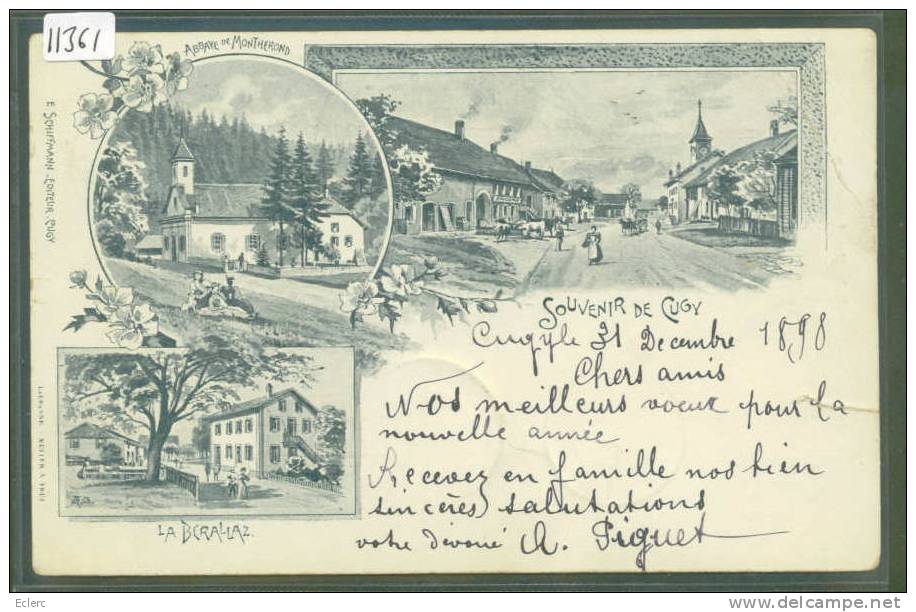 11361
ABBAYE DE MONTHEROND
E. SCHIFFMANN - EDITEUR - CUGY
SOUVENIR DE CUGY
Cugy le 31 Decembre 1898
Chers amis
Nos meilleurs voeux pour la
nouvelle année
Recevez en famille nos bien
sincères salutations
votre dévoué A. Piguet
LA BÉRALLAZ.
Eclerc
delcampe.net